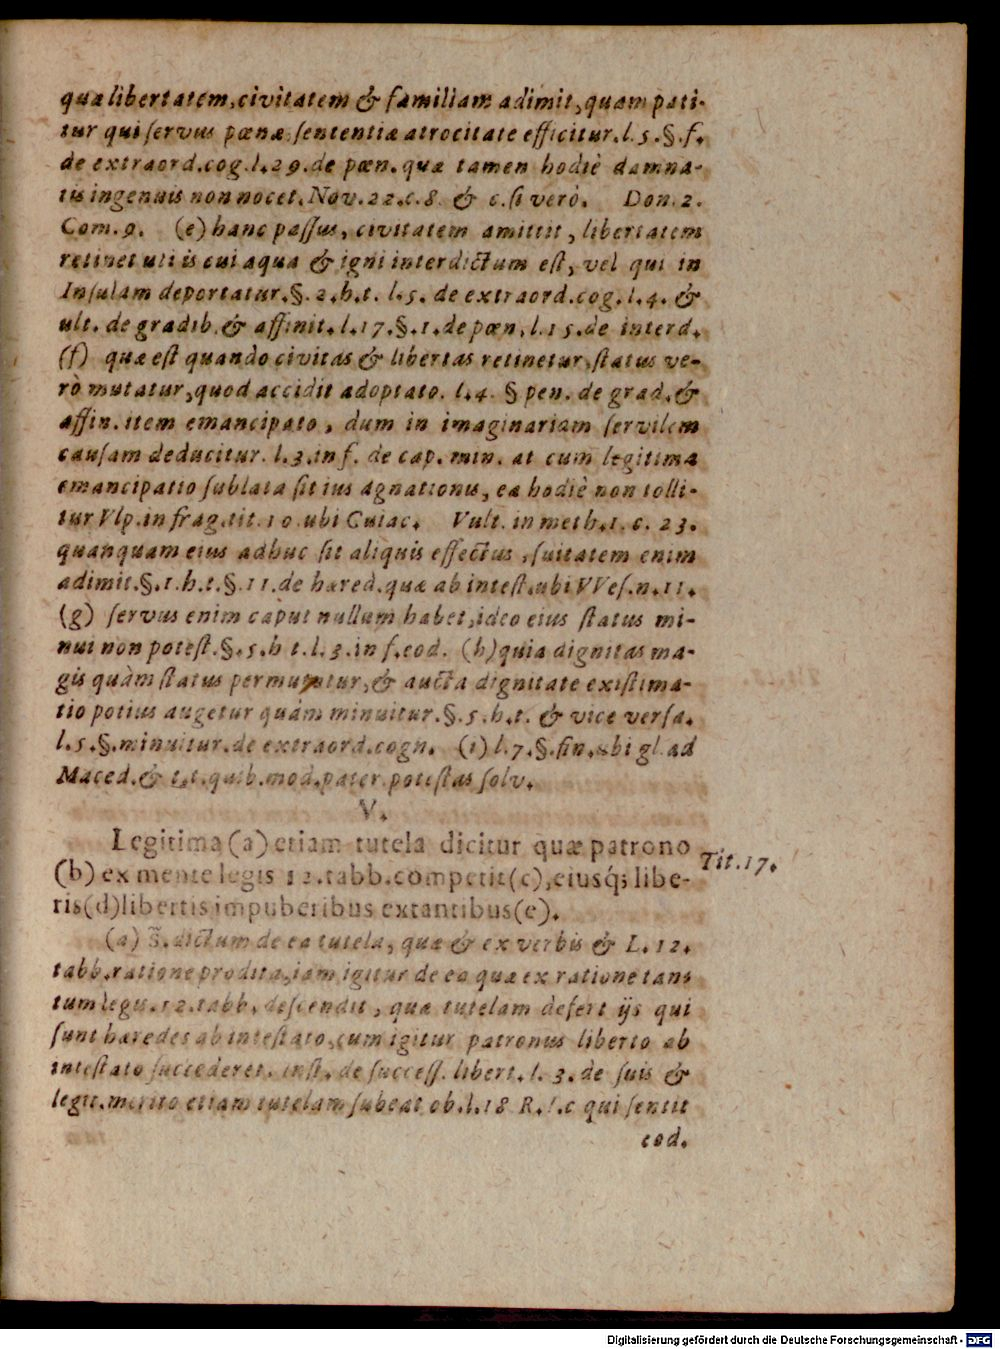 quæ libertatem, civitatem & familiam adimit, quam pati-
tur qui servus pœnæ sententiæ atrocitate efficitur. l. 5. §. f.
de extraord. cog. l. 29. de pœn. quæ tamen hodiè damna-
tis ingenuis non nocet. Nov. 22. c. 8. & c. si verò. Don. 2.
Com. 9. (e) hanc passus, civitatem amittit, libertatem
retinet uti is cui aqua & igni interdictum est, vel qui in
Insulam deportatur. §. 2. h. t. l. 5. de extraord. cog. l. 4. &
ult. de gradib. & affinit. l. 17. §. 1. de pœn. l. 15. de interd.
(f) quæ est quando civitas & libertas retinetur, status ve-
rò mutatur, quod accidit adoptato. l. 4. § pen. de grad. &
affin. item emancipato, dum in imaginariam servilem
causam deducitur. l. 3. in f. de cap. min. at cum legitima
emancipatio sublata sit ius agnationis, ea hodiè non tolli-
tur Vlp. in frag. tit. 10. ubi Cuiac. Vult. in meth. 1. c. 23.
quanquam eius adhuc sit aliquis effectus, suitatem enim
adimit. §. 1. h. t. §. 11. de hæred. quæ ab intest. ubi VVes. n. 11.
(g) servus enim caput nullum habet, ideo eius status mi-
nui non potest. §. 5. h t. l. 3. in f. eod. (h) quia dignitas ma-
gis quàm status permutatur, & aucta dignitate existima-
tio potius augetur quàm minuitur. §. 5. h. t. & vice versa.
l. 5. §. minuitur. de extraord. cogn. (i) l. 7. §. fin. ubi gl. ad
Maced. & t. t. quib. mod. pater. potestas solv.
V.
Legitima (a) etiam tutela dicitur quæ patrono
(b) ex mente legis 12. tabb. competit (c), eiusq́; libe-
ris (d) libertis impuberibus extantibus (e).
Tit. 17.
(a) S. dictum de ea tutela, quæ & ex verbis & L. 12.
tabb. ratione prodita, iam igitur de ea quæ ex ratione tan-
tum legis. 12. tabb. descendit, quæ tutelam defert ijs qui
sunt hæredes ab intestato, cum igitur patronus liberto ab
intestato succederet. inst. de success. libert. l. 3. de suis &
legit. merito etiam tutelam subeat ob. l. 18 R. I. c qui sentit
eod.
Digitalisierung gefördert durch die Deutsche Forschungsgemeinschaft - DFG